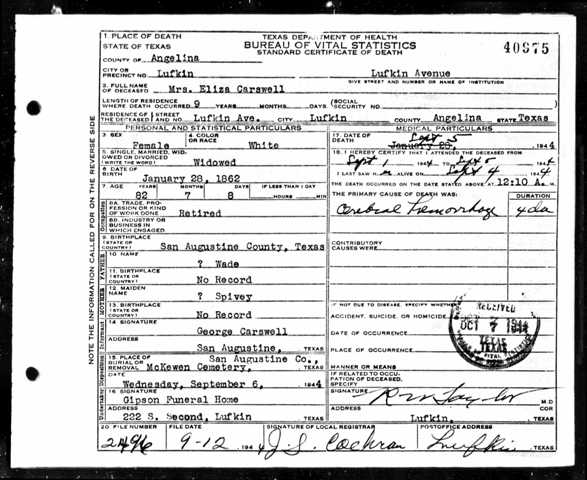 1 PLACE OF DEATH
STATE OF TEXAS
TEXAS DEPARTMENT OF HEALTH
BUREAU OF VITAL STATISTICS
STANDARD CERTIFICATE OF DEATH
40875
COUNTY OF Angelina
CITY OR PRECINCT NO. Lufkin Lufkin Avenue
GIVE STREET AND NUMBER OR NAME OF INSTITUTION
2. FULL NAME OF DECEASED Mrs. Eliza Carswell
LENGTH OF RESIDENCE WHERE DEATH OCCURRED 9 YEARS MONTHS DAYS (SOCIAL SECURITY NO.
RESIDENCE OF THE DECEASED STREET AND NO. Lufkin Ave. CITY Lufkin COUNTY Angelina STATE Texas
PERSONAL AND STATISTICAL PARTICULARS
3 SEX Female
4. COLOR OR RACE White
5 SINGLE, MARRIED, WIDOWED OR DIVORCED (WRITE THE WORD) Widowed
6 DATE OF BIRTH January 28, 1862
7. AGE YEARS 82 MONTHS 7 DAYS 8 IF LESS THAN 1 DAY HOURS MIN
8A. TRADE, PROFESSION OR KIND OF WORK DONE Retired
8B. INDUSTRY OR BUSINESS IN WHICH ENGAGED
9. BIRTHPLACE (STATE OR COUNTRY) San Augustine County, Texas
10 NAME ? Wade
11. BIRTHPLACE (STATE OR COUNTRY) No Record
12. MAIDEN NAME ? Spivey
13. BIRTHPLACE (STATE OR COUNTRY) No Record
14 SIGNATURE George Carswell
ADDRESS San Augustine, TEXAS
15. PLACE OF BURIAL OR REMOVAL San Augustine Co., McKewen Cemetery, TEXAS
DATE Wednesday, September 6, 1944
16 SIGNATURE Gipson Funeral Home
ADDRESS 222 S. Second, Lufkin TEXAS
MEDICAL PARTICULARS
17. DATE OF DEATH January 28, Sept 5 1944
18. I HEREBY CERTIFY THAT I ATTENDED THE DECEASED FROM
Sept 1 1944 TO Sept 5 1944
I LAST SAW H ALIVE ON Sept 4 1944
THE DEATH OCCURRED ON THE DATE STATED ABOVE AT 12:10 A. M.
THE PRIMARY CAUSE OF DEATH WAS: DURATION
Cerebral Hemorrhage 4da
CONTRIBUTORY CAUSES WERE:
IF NOT DUE TO DISEASE, SPECIFY WHETHER
ACCIDENT, SUICIDE, OR HOMICIDE
DATE OF OCCURRENCE
PLACE OF OCCURRENCE
MANNER OR MEANS
IF RELATED TO OCCUPATION OF DECEASED, SPECIFY
RECEIVED
OCT 7 1944
TEXAS
VITAL
SIGNATURE R W Taylor M D
ADDRESS Lufkin, COR TEXAS
20 FILE NUMBER 2496
FILE DATE 9-12 1944
SIGNATURE OF LOCAL REGISTRAR J. S. Cochran
POSTOFFICE ADDRESS Lufkin TEXAS
NOTE THE INFORMATION CALLED FOR ON THE REVERSE SIDE
Occupation
FATHER
MOTHER
Informant